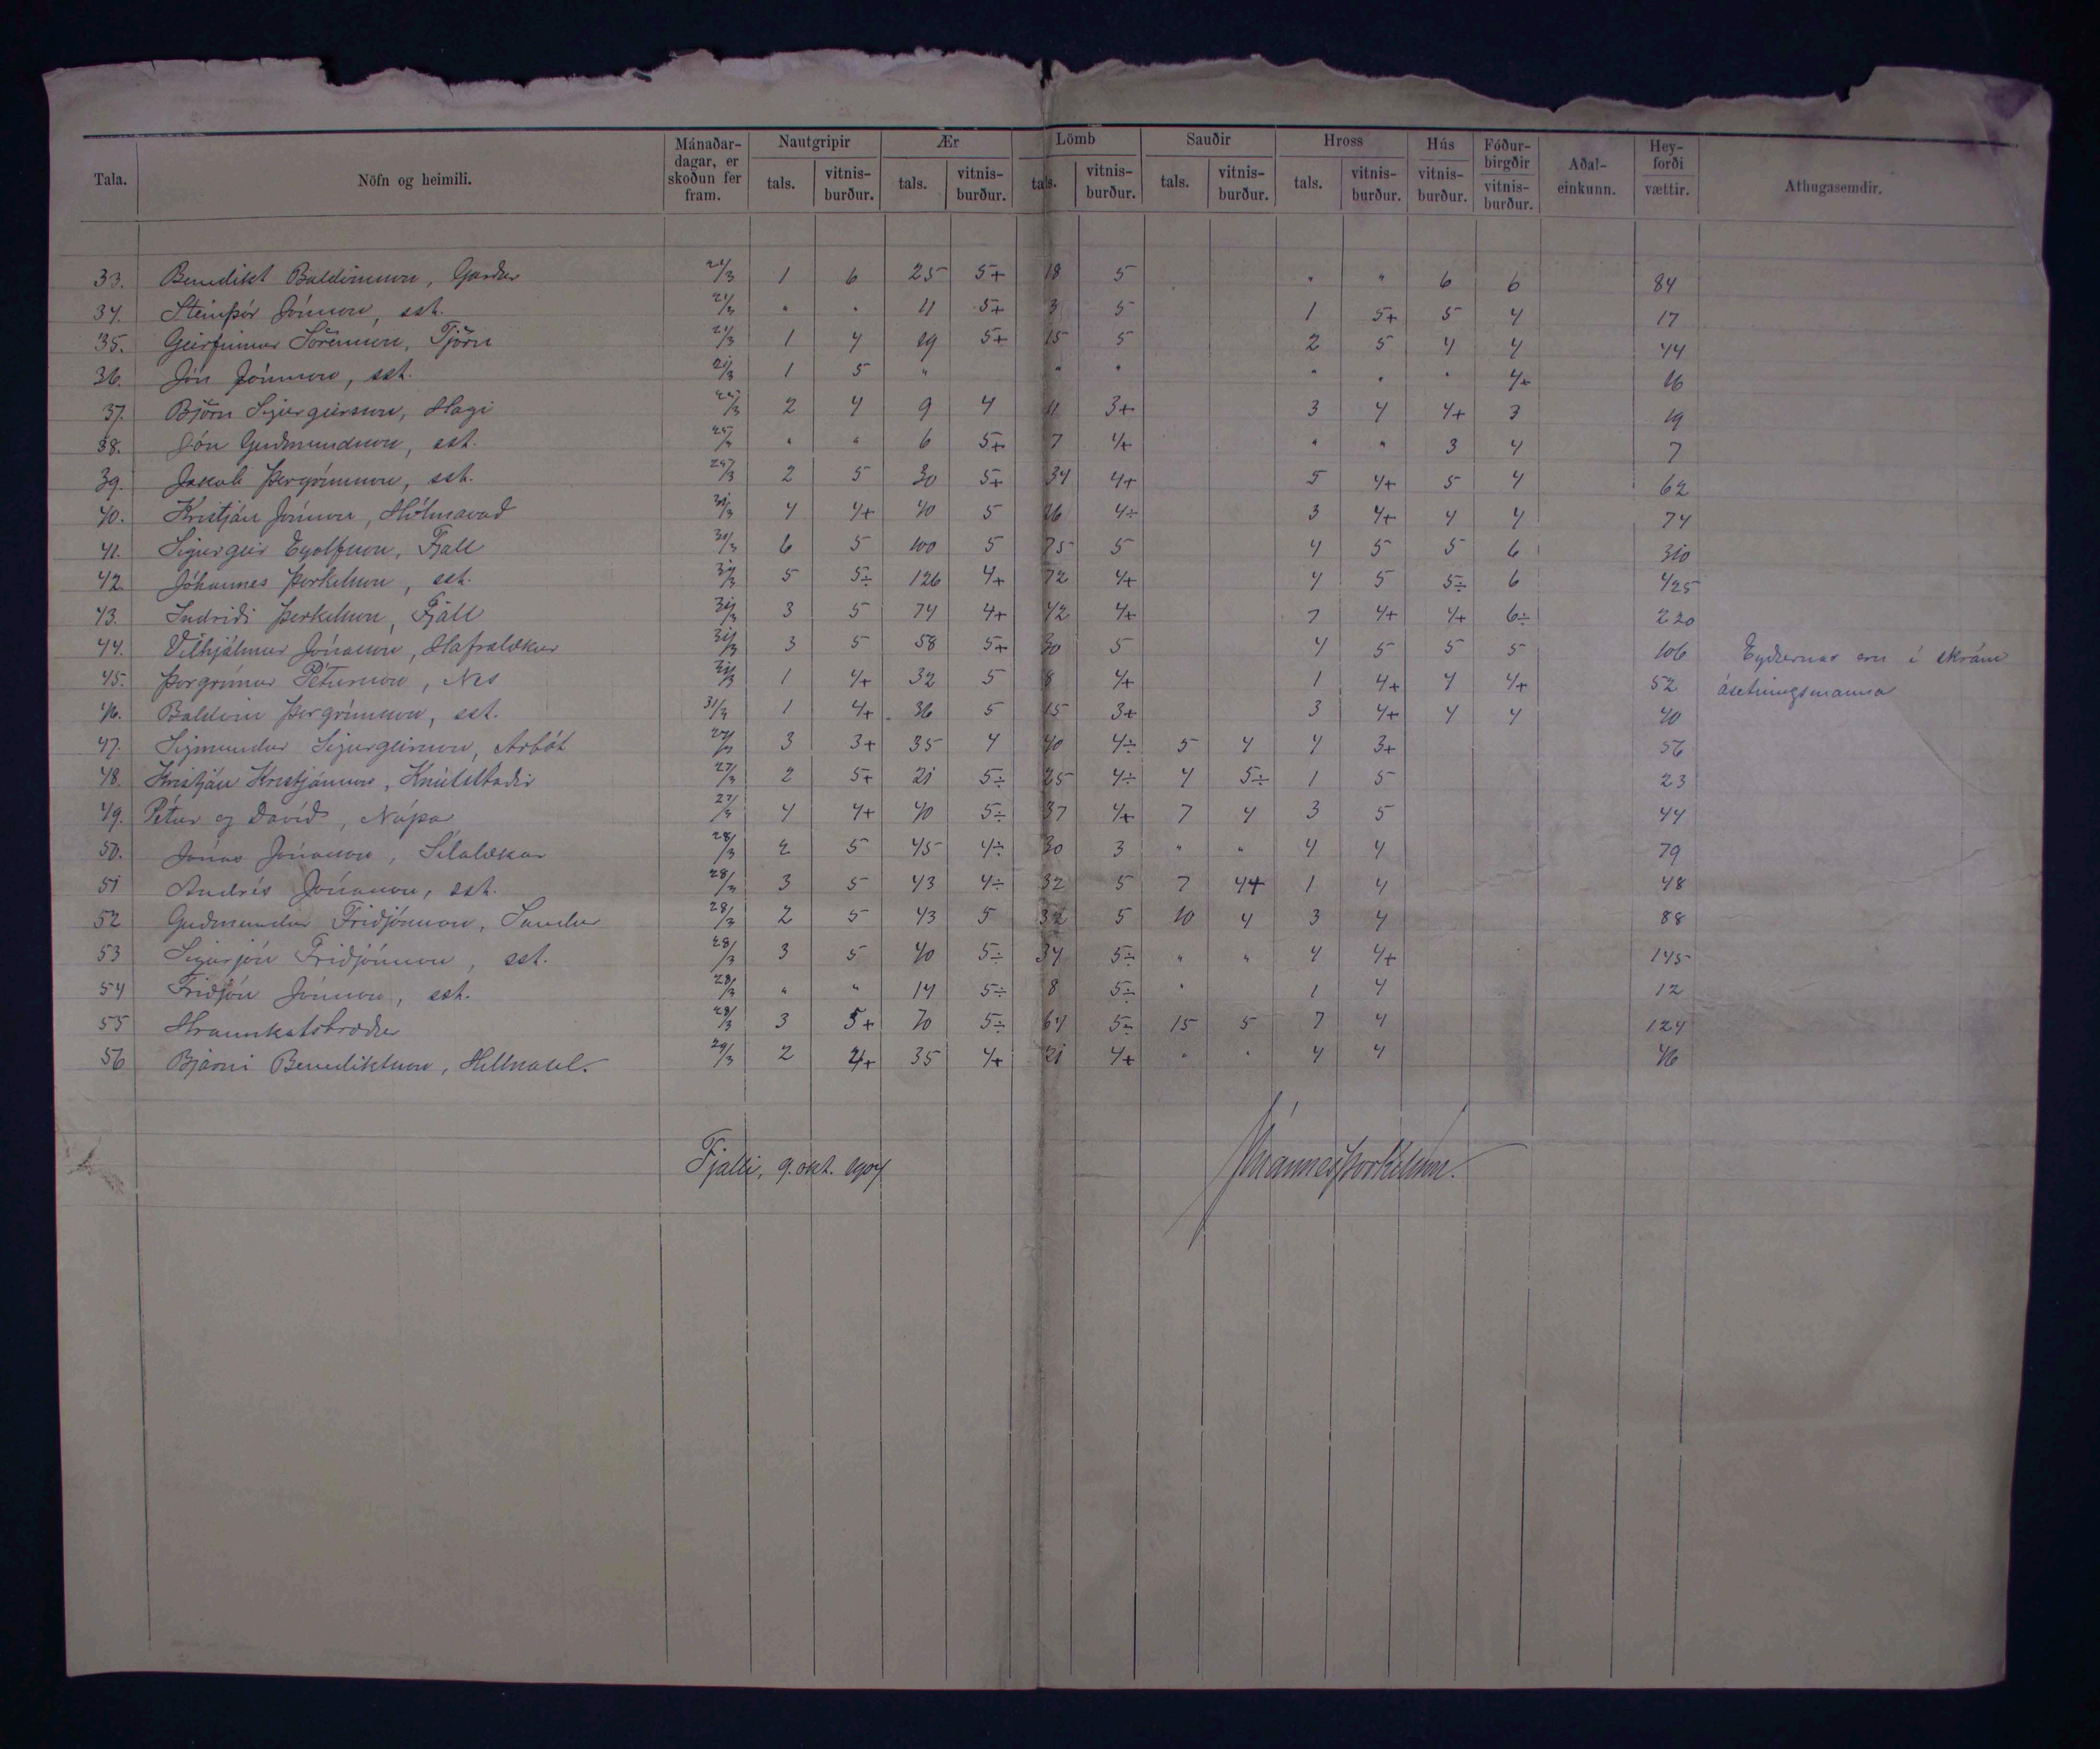 Tala. Nöfn og heimili. Mánaðardagar, er skoðun fer fram. Nautgripir Ær Lömb Sauðir Hross Hús Fóðurbirgðir Aðaleinkunn. Heyforði Athugasemdir.
tals. vitnisburður. tals. vitnisburður. tals. vitnisburður. tals. vitnisburður. tals. vitnisburður. vitnisburður. vitnisburður. vættir.
33. Benedikt Baldvinsson, Garður 21/3 1 6 25 5+ 18 5 " " 6 6 84
34. Steinþór Jónsson, sst. 21/3 " " 11 5+ 3 5 1 5+ 5 4 17
35. Geirfinnur Sörensson, Tjörn 21/3 1 4 29 5+ 15 5 2 5 4 4 44
36. Jón Jónsson, sst. 21/3 1 5 " " " " " " 4+ 16
37. Björn Sigurgeirsson, Hagi 25/3 2 4 9 4 11 3+ 3 4 4+ 3 19
38. Jón Guðmundsson, sst. 25/3 " " 6 5+ 7 4+ " " 3 4 7
39. Jakob Þorgrímsson, sst. 25/3 2 5 30 5+ 34 4+ 5 4+ 5 4 62
40. Kristján Jónsson, Hólmavað 30/3 4 4+ 40 5 26 4÷ 3 4+ 4 4 74
41. Sigurgeir Eyolfsson, Fjall 30/3 6 5 100 5 75 5 4 5 5 6 310
42. Jóhannes Þorkelsson, sst. 31/3 5 5÷ 126 4+ 72 4+ 4 5 5÷ 6 425
43. Indriði Þorkelsson, Fjall 31/3 3 5 74 4+ 42 4+ 7 4+ 4+ 6÷ 220
44. Vilhjálmur Jónasson, Hafralækur 31/3 3 5 58 5+ 30 5 4 5 5 5 106 Eyðurnar eru í skrám
45. Þorgrímur Pétursson, Nes 31/3 1 4+ 32 5 8 4+ 1 4+ 4 4+ 52 ásetningsmanna
46. Baldvin Þorgrímsson, sst. 31/3 1 4+ 36 5 15 3+ 3 4+ 4 4 40
47. Sigmundur Sigurgeirsson, Árbót 27/3 3 3+ 35 4 40 4÷ 5 4 4 3+ 56
48. Kristján Kristjánsson, Knútsstaðir 27/3 2 5+ 21 5÷ 25 4÷ 4 5÷ 1 5 23
49. Pétur og Davíð, Núpa 27/3 4 4+ 40 5÷ 37 4+ 7 4 3 5 44
50. Jónas Jónasson, Sílalækur 28/3 2 5 45 4÷ 30 3 " " 4 4 79
51 Andrés Jónasson, sst. 28/3 3 5 43 4÷ 32 5 7 4+ 1 4 48
52 Guðmundur Friðjónsson, Sandur 28/3 2 5 43 5 32 5 10 4 3 4 88
53 Sigurjón Friðjónsson, sst. 28/3 3 5 40 5÷ 34 5÷ " " 4 4+ 145
54 Friðjón Jónsson, sst. 28/3 " " 14 5÷ 8 5÷ " 1 4 12
55 Hraunkotsbræður 29/3 3 5+ 70 5÷ 64 5÷ 15 5 7 4 124
56 Bjarni Benediktsson, Hellnasel. 29/3 2 4+ 35 4+ 21 4+ " " 4 4 46
Fjalli, 9. okt. 1904 Jóhannes Þorkelsson.